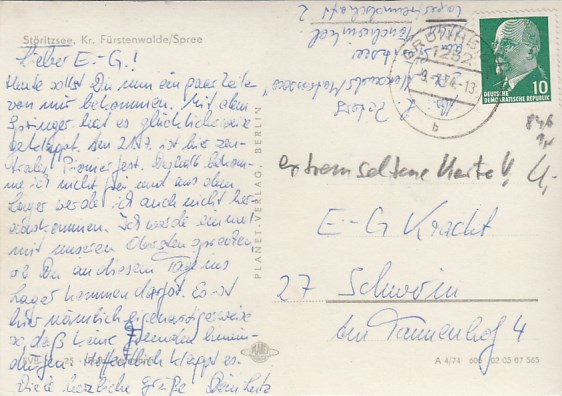 Störitzsee, Kr. Fürstenwalde/Spree
Lieber E.-G.!
Heute sollst Du nun ein paar Zeilen
von mir bekommen. Mit dem
Springer hat es glücklicherweise
geklappt. Am 21.7. ist hier zen-
trales Pionierfest. Deshalb bekom-
me ich nicht frei und aus dem
Lager werde ich auch nicht her-
auskommen. Ich werde einmal
mit unseren Obersten sprechen
ob Du an diesem Tage ins
Lager kommen darfst. Es ist
hier nämlich eigenartigerweise
so, daß keine Fremden hinein-
dürfen. Hoffentlich klappt es.
Viele herzliche Grüße Dein
PLANET-VERLAG, BERLIN
PLANET
GRÜNHEIDE
1252
-13
b
DEUTSCHE
DEMOKRATISCHE REPUBLIK
10
extrem seltene Karte!
4,-
E.-G. Kracht
27 Schwerin
Am Tannenhof 4
A 4/74 606 02 05 07 565